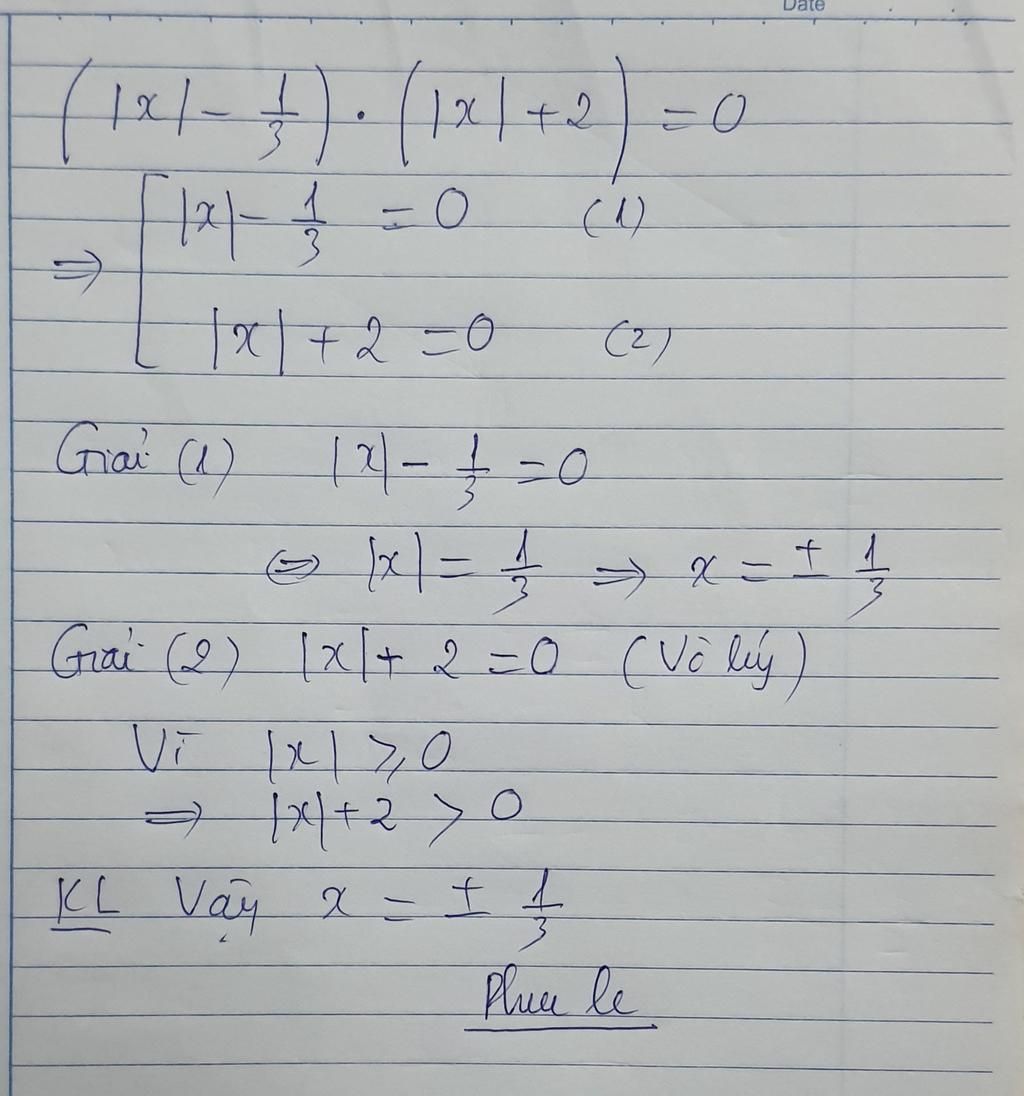 Date
(|x| - 1/3) . (|x| + 2) = 0
⇒ [ |x| - 1/3 = 0 (1)
|x| + 2 = 0 (2)
Giải (1) |x| - 1/3 = 0
⇔ |x| = 1/3 ⇒ x = ± 1/3
Giải (2) |x| + 2 = 0 (Vô lý)
Vì |x| ⩾ 0
⇒ |x| + 2 > 0
KL Vậy x = ± 1/3